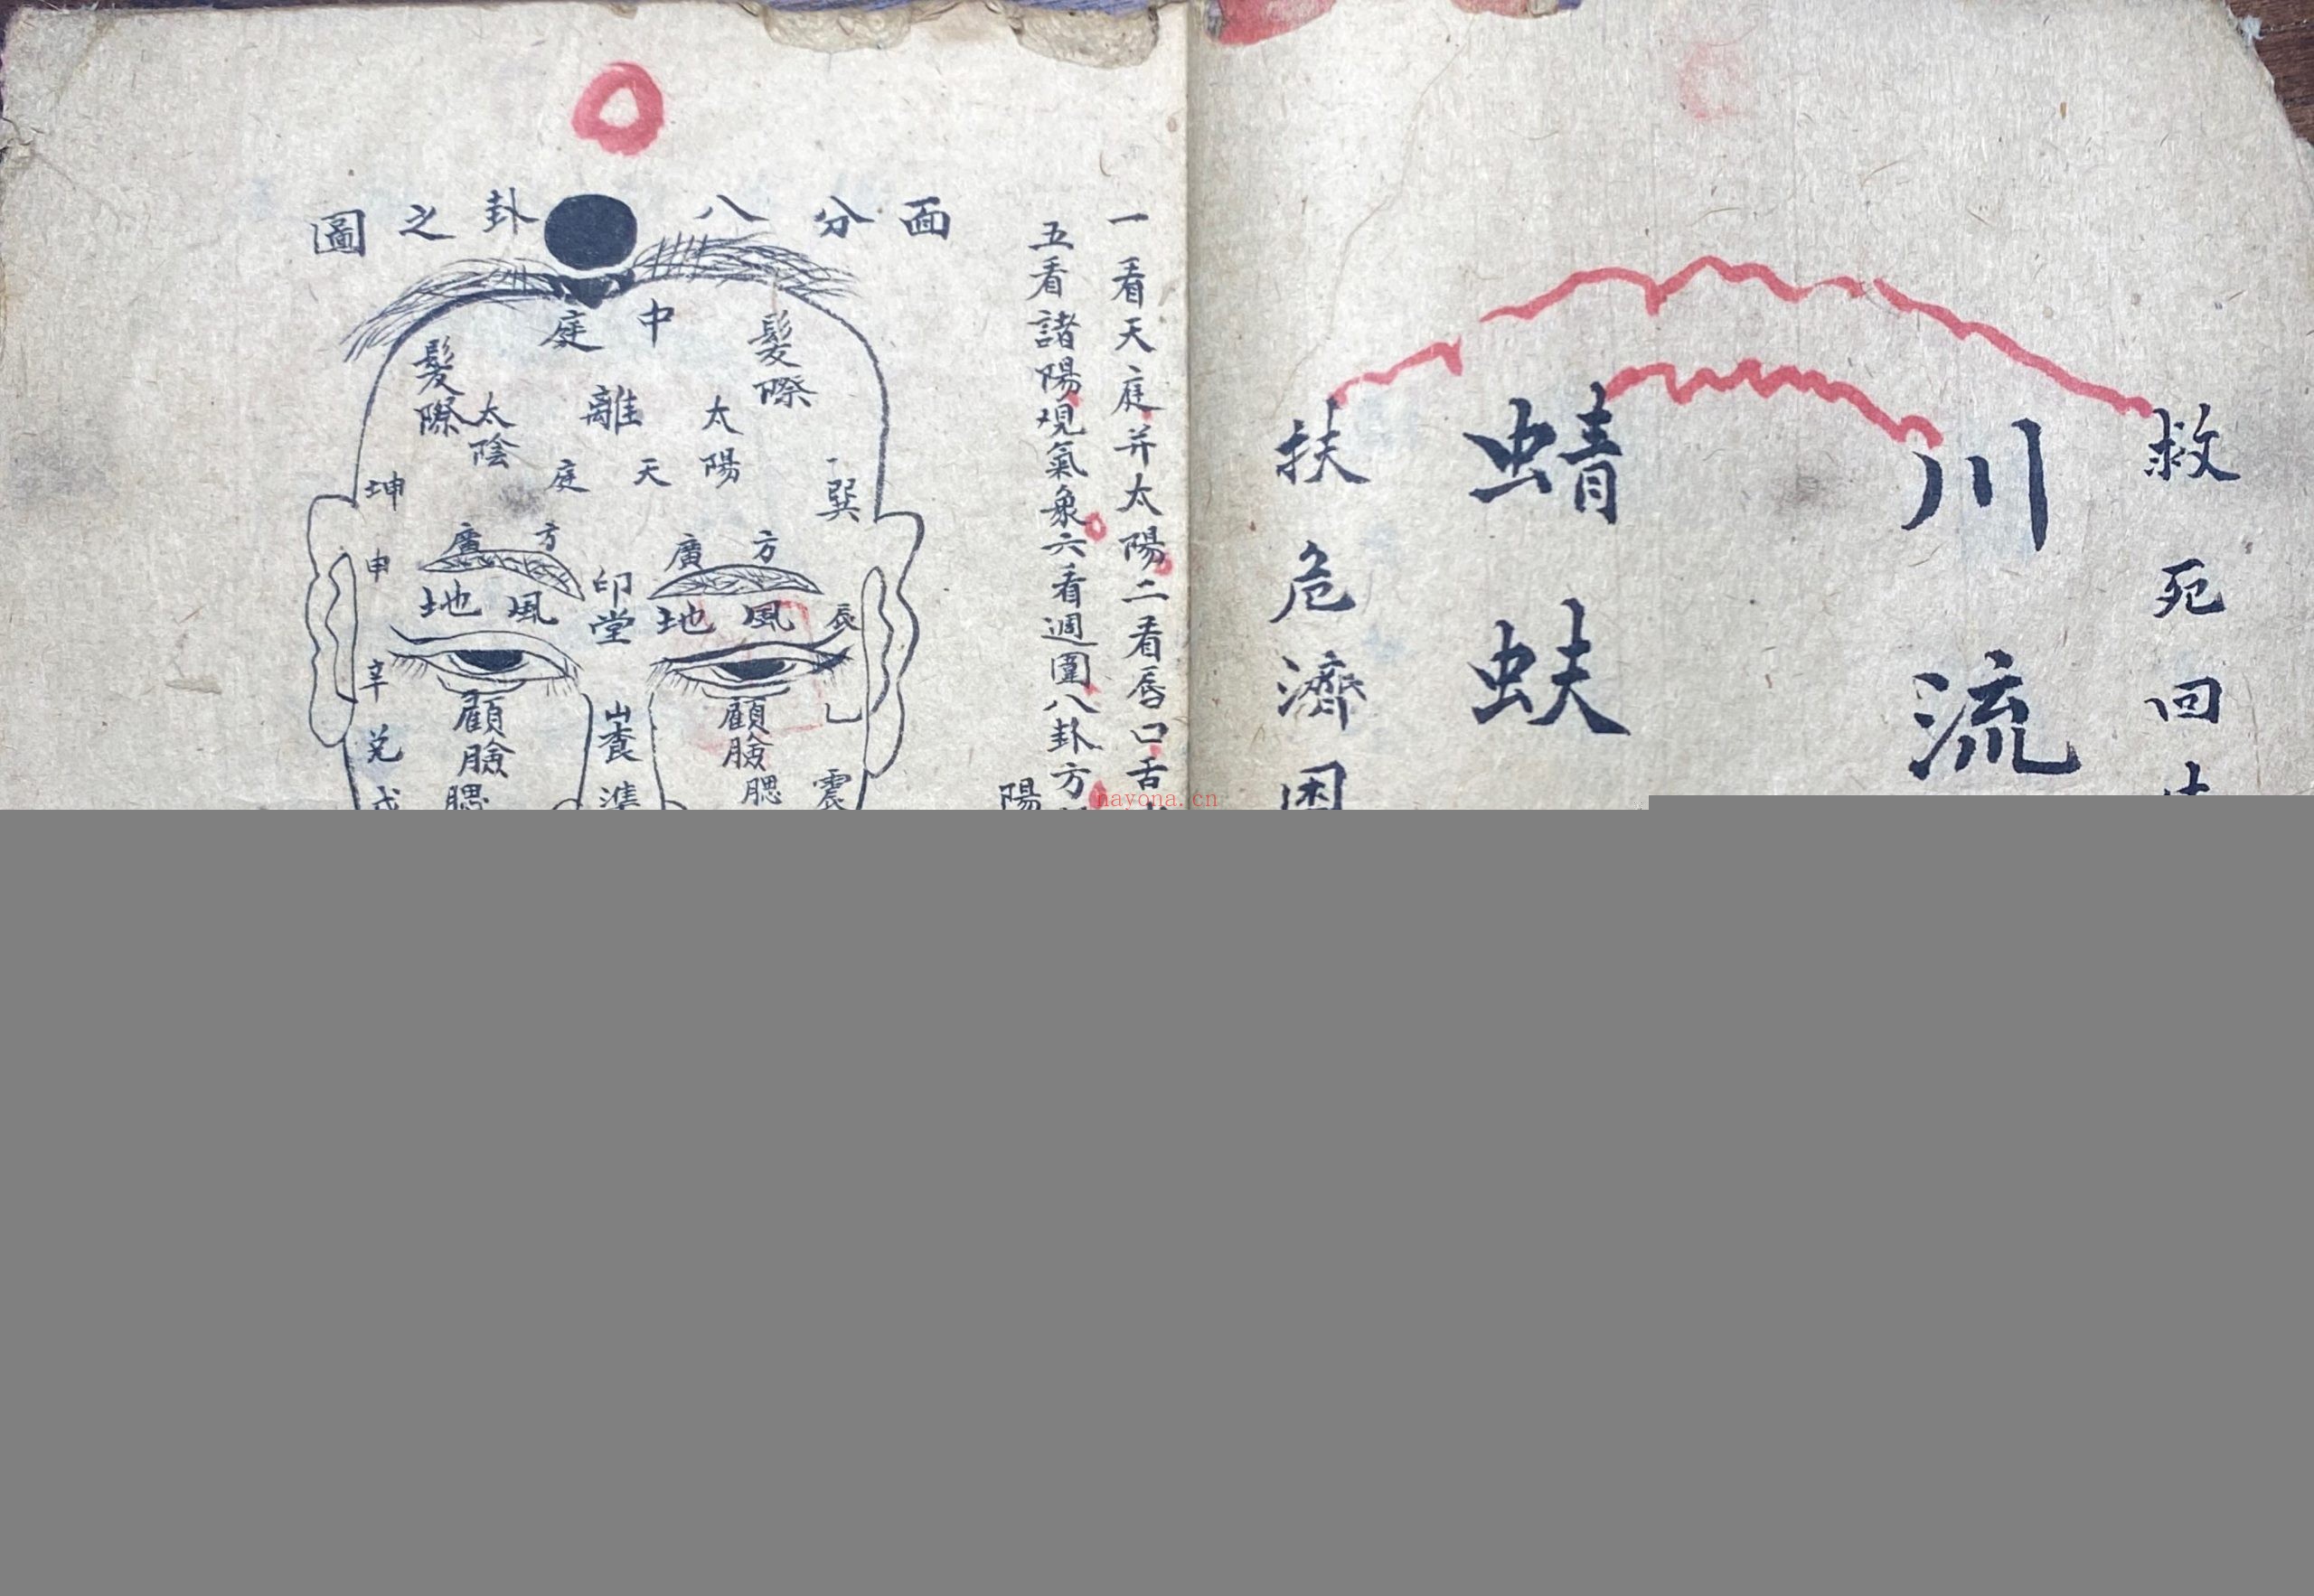 救死回
川流
蜻蚨
扶危濟困
一看天庭并太陽二看唇口舌
五看諸陽觀氣象六看週圍八卦方
陽
面分八卦之圖
中庭
髮際
髮際
離
太陽
太陰
天庭
巽
坤
方廣
方廣
申
印堂
風地
風地
辰
辛
顧臉
顧臉
乙
兌
腮
腮
震
nayona.cn